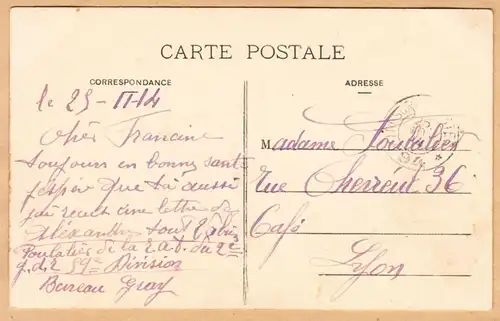 CARTE POSTALE
CORRESPONDANCE
le 25-II-14
Chèr Francine
toujours en bonne santé
j'espère que toi aussi
j'ai reçut une lettre de
Alexandre tout
Poulalier de la 2 du 22e
g.d. 2 57e Division
Bureau Gray
ADRESSE
Madame Poulalier
rue Chevreul 36
Café
Lyon